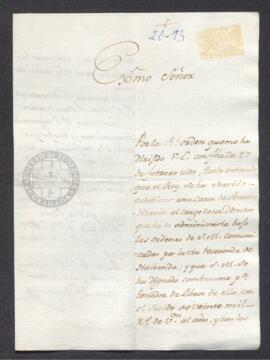 26-13
Exmo Señor
Por la Rl. orden que me ha
dirijido V.E. con fha de 27
de febrero ultº, quedo enterado
que el Rey se ha servido
establecer una Casa de
al cargo de un Director
que ha de administrarla bajo
las ordenes de S.M. comuni-
cadas por la via reservada de
Hacienda; y que S.M. se
ha dignado nombrarme pª
tenedor de Libros de ella, con
el sueldo de veinte mil
rs. de von al año, y con los